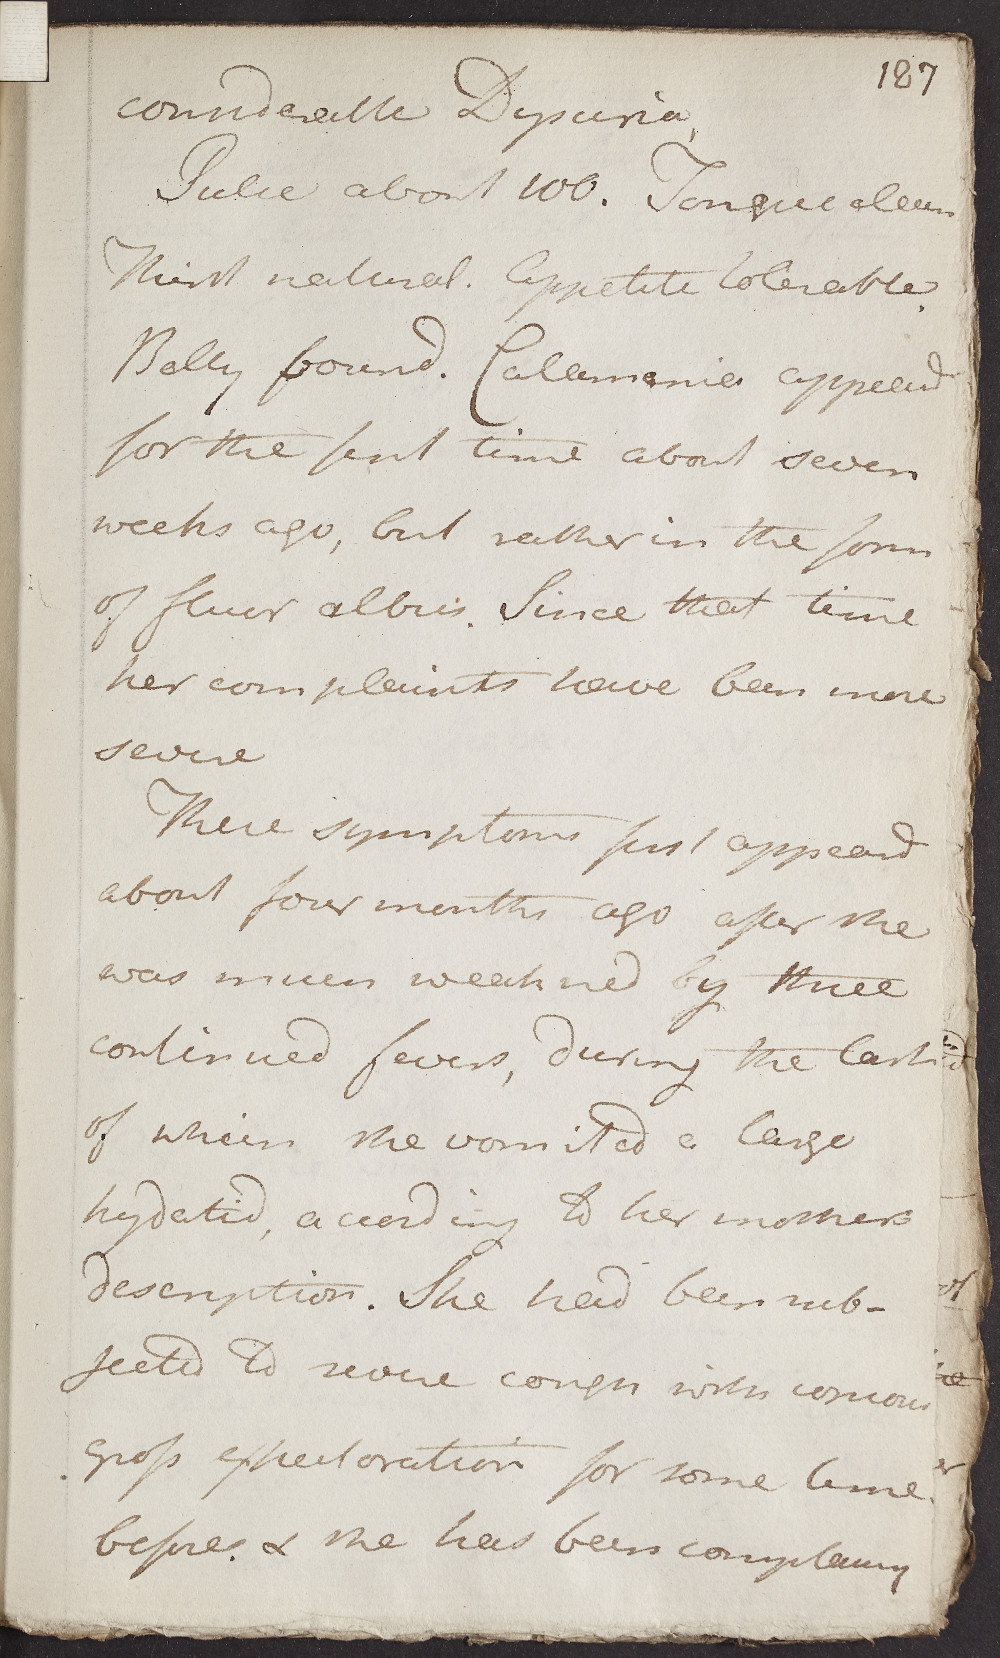 187
considerable Dysuria,
Pulse about 100. Tongue clean
Thirst natural. Appetite tolerable.
Belly bound. Catamenia appeard
for the first time about seven
weeks ago, but rather in the form
of fluor albus. Since that time
her complaints have been more
severe
These symptoms first appeard
about four months ago after she
was much weakned by three
continued fevers, during the last
of which she vomited a large
hydatid, according to her mothers
description. She had been sub-
jected to severe cough with copious
gross expectoration for some time
before. & she has been complaing